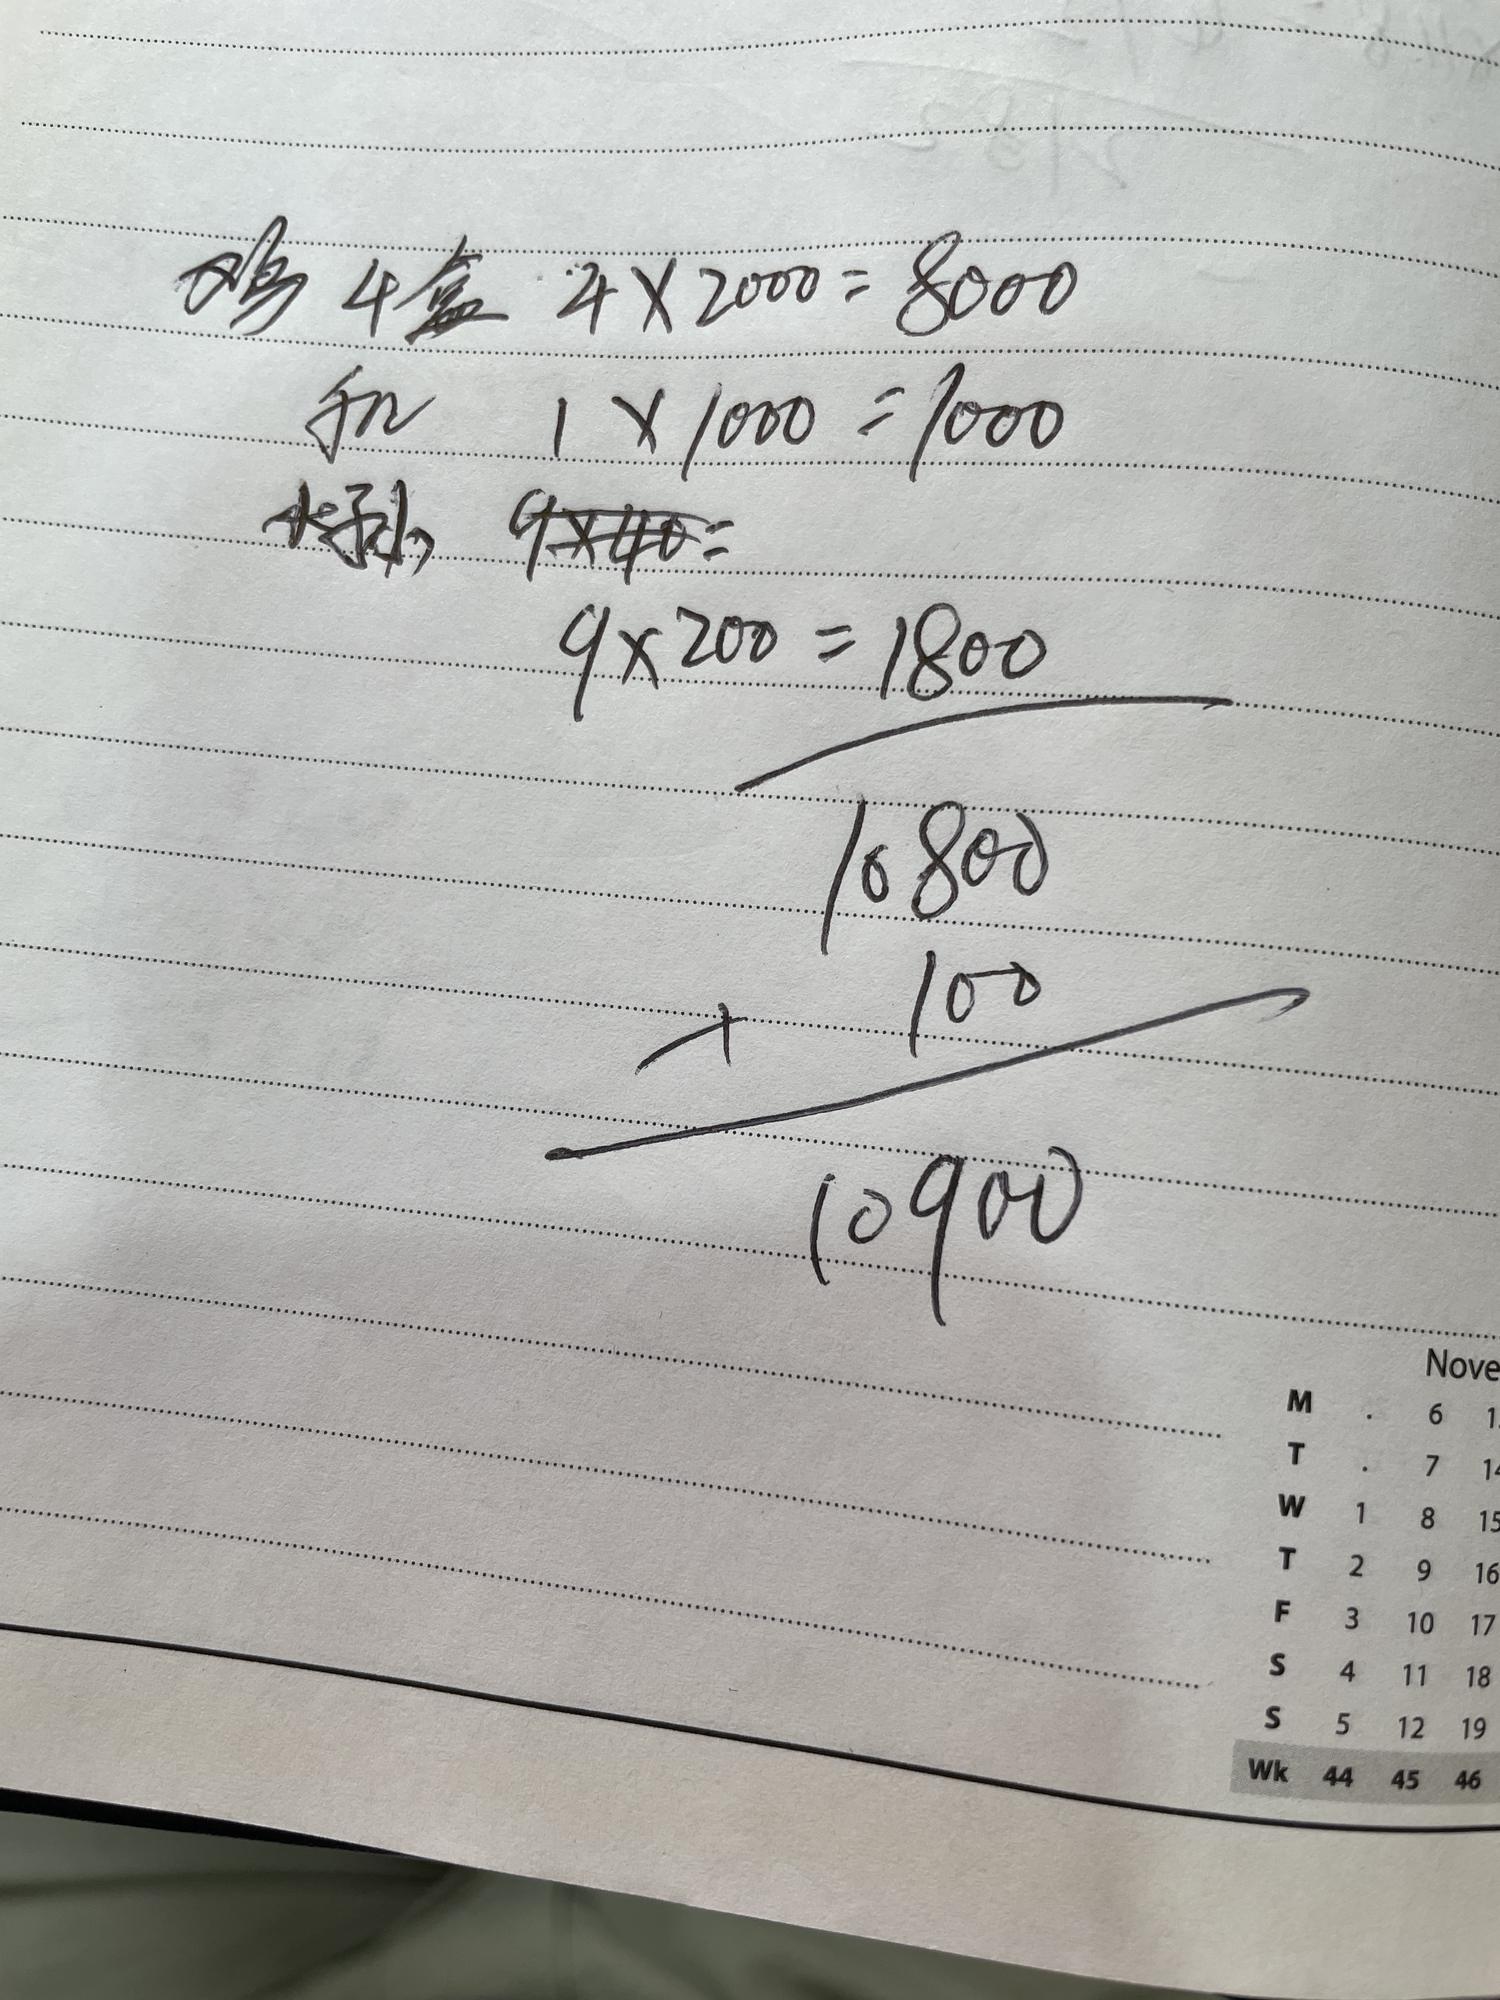 鸡 4盒 4×2000=8000
和 1×1000=1000
9×40=
9×200=1800
10800
+ 100
10900
Nove
M . 6 1
T . 7 14
W 1 8 15
T 2 9 16
F 3 10 17
S 4 11 18
S 5 12 19
Wk 44 45 46